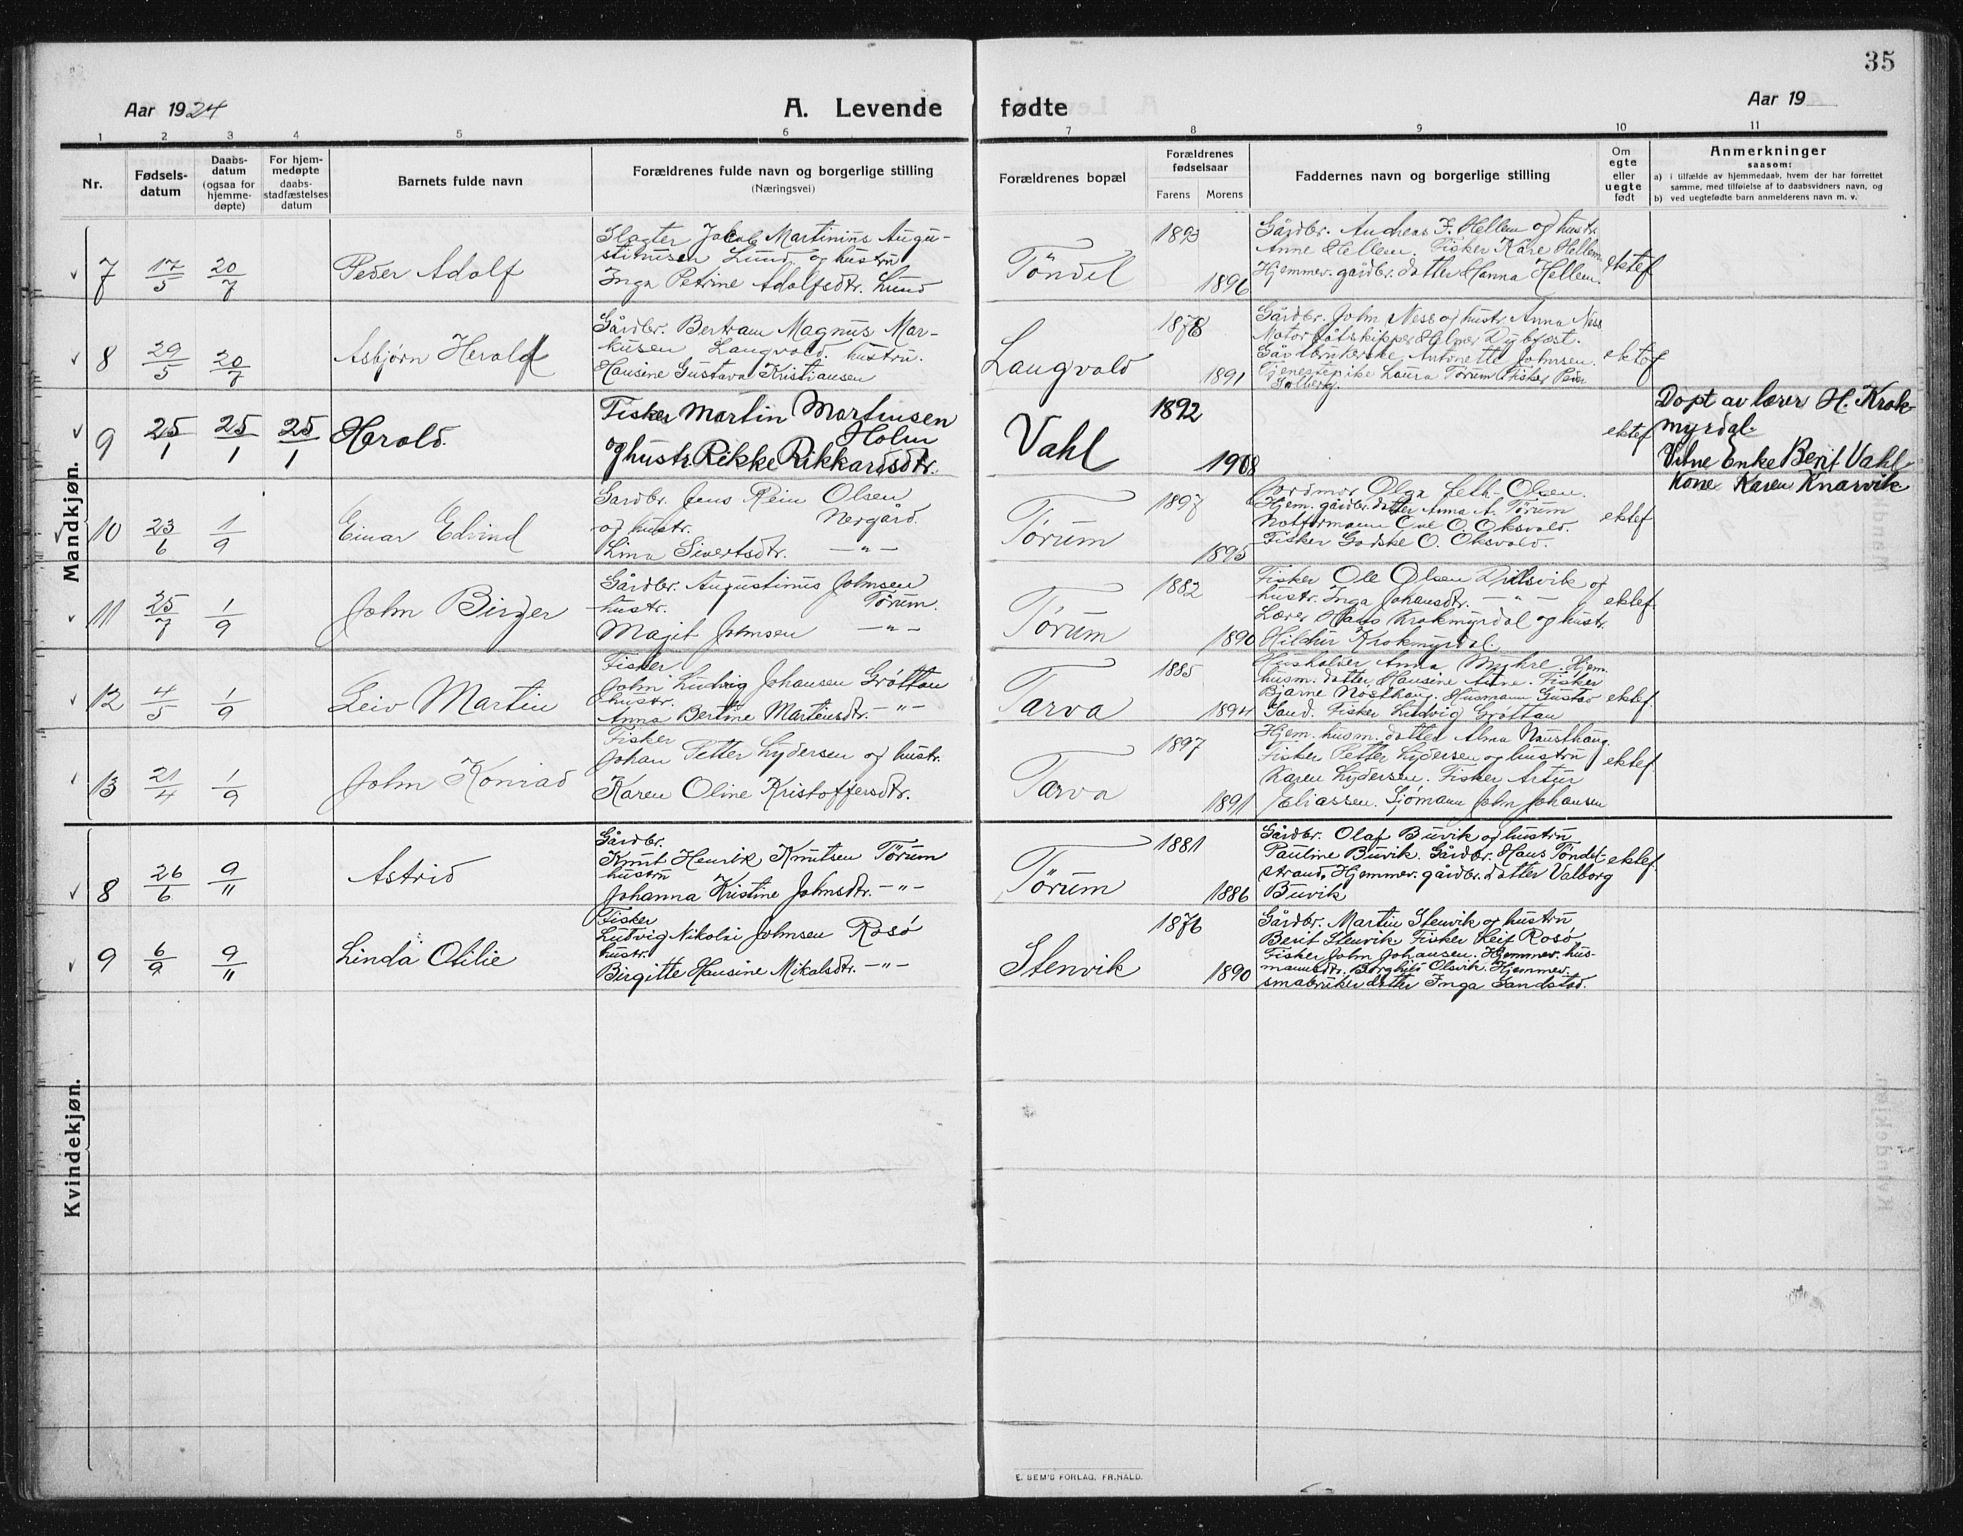 35
Aar 1924 A. Levende fødte Aar 19
1 2 3 4 5 6 7 8 9 10 11
Nr.
Fødsels-
datum
Daabs-
datum
(ogsaa for
hjemme-
døpte)
For hjem-
medøpte
daabs-
stadfæstelses
datum
Barnets fulde navn
Forældrenes fulde navn og borgerlige stilling
(Næringsvei)
Forældrenes bopæl
Forældrenes
fødselsaar
Farens Morens
Faddernes navn og borgerlige stilling
Om
egte
eller
uegte
født
Anmerkninger
saasom:
a) i tilfælde av hjemmedaab, hvem der har forrettet
samme, med tilføielse af to daabsvidners navn, og
b) ved uegtefødte barn anmelderens navn m. v.
Mandkjøn.
v 7 17/5 20/7 Peder Adolf
Slagter Jakob Martinius Augu-
stinusen Lund og hustru
Inga Petrine Adolfsdtr. Lund
Tøndel 1893 1896
Gårdbr. Andreas F. Hellem og hustr.
Anne Hellem. Fisker Kåre Hellem
Hjemmev. gårdbr. datter Hanna Hellem.
ektef
v 8 29/5 20/7 Asbjørn Herald
Gårdbr. Bertram Magnus Mar-
kusen Langvold. hustru.
Hansine Gustava Kristiansen
Langvold 1878 1891
Gårdbr. John Ness og hustr. Anna Ness
Motorbåtskipper Hilmer Dybfest.
Gårdbrukerske Antonette Johnsen.
Tjenestepike Laura Tørum Fisker Peder
Solberg.
ektef
v 9 25/1 25/1 25/1 Harald
Fisker Martin Martinsen
Holm
og hustr. Rikke Rikkardsdtr.
Vahl 1892 1908
ektef
Døpt av lærer H. Krok-
myrdal.
Vitne Enke Berit Vahl
Kone Karen Knarvik
v 10 23/6 1/9 Einar Edvind
Gardbr. Jens Rein Olsen
og hustr. Nergård.
Lina Sivertsdtr. —"—
Tørum 1897 1895
Jordmor Olga Leth-Olsen.
Hjem. gårdbr. datter Anna A. Tørum
Notformann Ove O. Oksvold.
Fisker Godske O. Oksvold.
ektef
v 11 25/7 1/9 John Birger
Gårdbr. Augustinus Johnsen
hustr. Tørum.
Majit Johnsen —"—
Tørum 1882 1890
Fisker Ole Olsen Dillsvik og
hustr. Inga Johansdtr. —"—
Lærer Hans Krokmyrdal og hustr.
Hildur Krokmyrdal.
ektef.
v 12 4/5 1/9 Leiv Martin
Fisker
John Ludvig Johansen Grøttan
hustr.
Anna Bertine Martensdtr. —"—
Tarva 1885 1894
Husholder Anna Myhre. Hjem.
husm. datter Hansine Aune. Fisker
Bjarne Nøsthaug. Husmann Gustav
Sand. Fisker Ludvig Grøttan
ektef.
v 13 21/4 1/9 John Konrad
Fisker
Johan Petter Lydersen og hustr.
Karen Oline Kristoffersdtr.
Tarva 1897 1891
Hjem. husm. datter Alma Nausthaug.
Fisker Petter Lydersen og hustru
Karen Lydersen. Fisker Artur
Eliassen. Sjømann John Johansen
ektef.
Kvindekjøn.
v 8 26/6 9/11 Astrid
Gårdbr.
Knut Henrik Knutsen Tørum
hustru
Johanna Kristine Johnsdtr. —"—
Tørum 1881 1886
Gårdbr. Olaf Buvik og hustru
Pauline Buvik. Gårdbr. Hans Tøndel-
strand. Hjemmev. gårdbr. datter Valborg
Buvik
ektef.
v 9 6/9 9/11 Linda Otilie
Fisker
Ludvig Nikolai Johnsen Rosø
hustr.
Birgitte Hansine Mikalsdtr. —"—
Stenvik 1876 1890
Gårdbr. Martin Stenvik og hustru
Berit Stenvik Fisker Leif Rosø
Fisker John Johansen. Hjemmev. hus-
mannsdtr. Borghild Olsvik. Hjemmev.
småbruker datter Inga Sandstad.
E. SEM'S FORLAG, FR.HALD.